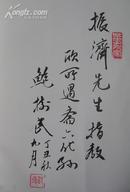 振濟先生指教
欣所遇齋六代孫
鮑樹民
丁丑秋
九月